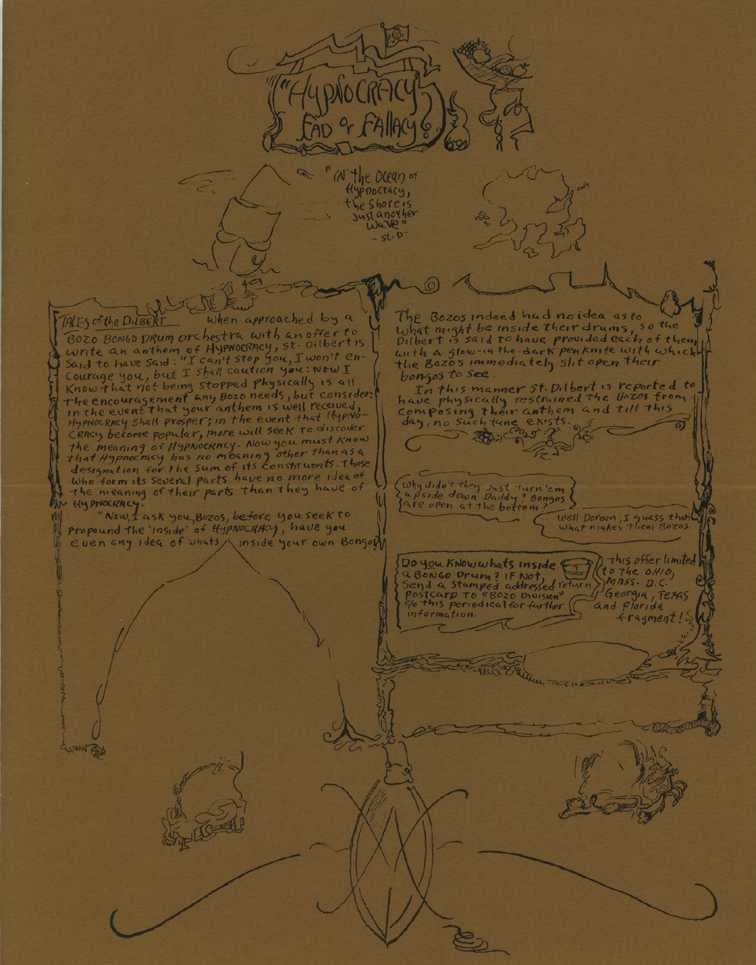 "HYPNOCRACY
FAD or FALLACY?
"IN the Ocean of
Hypnocracy,
the Shore is
Just another
Wave"
- St. D -
TALES of the DILBERT When approached by a
BOZO BONGO DRUM ORCHESTRA with an offer to
write an anthem of HYPNOCRACY, St. Dilbert is
Said to have Said: "I can't stop you, I won't en-
Courage you, but I shall caution you: Now I
Know that not being stopped physically is all
the encouragement any Bozo needs, but consider:
in the event that your anthem is well received,
HYPNOCRACY Shall prosper; in the event that HYPNO-
CRACY become popular, more will seek to discover
the meaning of HYPNOCRACY. Now you must know
that Hypnocracy has no meaning other than as a
designation for the Sum of its Constituents. Those
who form its Several parts have no more idea of
the meaning of their parts than they have of
HYPNOCRACY.
"Now, I ask you, Bozos, before you seek to
Propound the 'inside' of HYPNOCRACY, have you
even any idea of whats inside your own Bongos
The Bozos indeed had no idea as to
what might be inside their drums, so the
Dilbert is said to have provided each of them
with a glow-in-the-dark penknife with which
the Bozos immediately Slit open their
bongos to see.
In this manner St. Dilbert is reported to
have physically restrained the Bozos from
Composing their anthem and till this
day, no such tune exists.
Why didn't they just turn 'em
upside down Daddy? Bongos
are open at the bottom!
Well Doreen, I guess thats
what makes them Bozos
Do you Know whats inside
a BONGO Drum? IF NOT,
Send a Stamped addressed return
Postcard To "BOZO Division"
c/o this periodical for further
information.
This offer limited
to the OHIO,
Mass. D.C.
Georgia, TEXAS
and Florida
fragment!